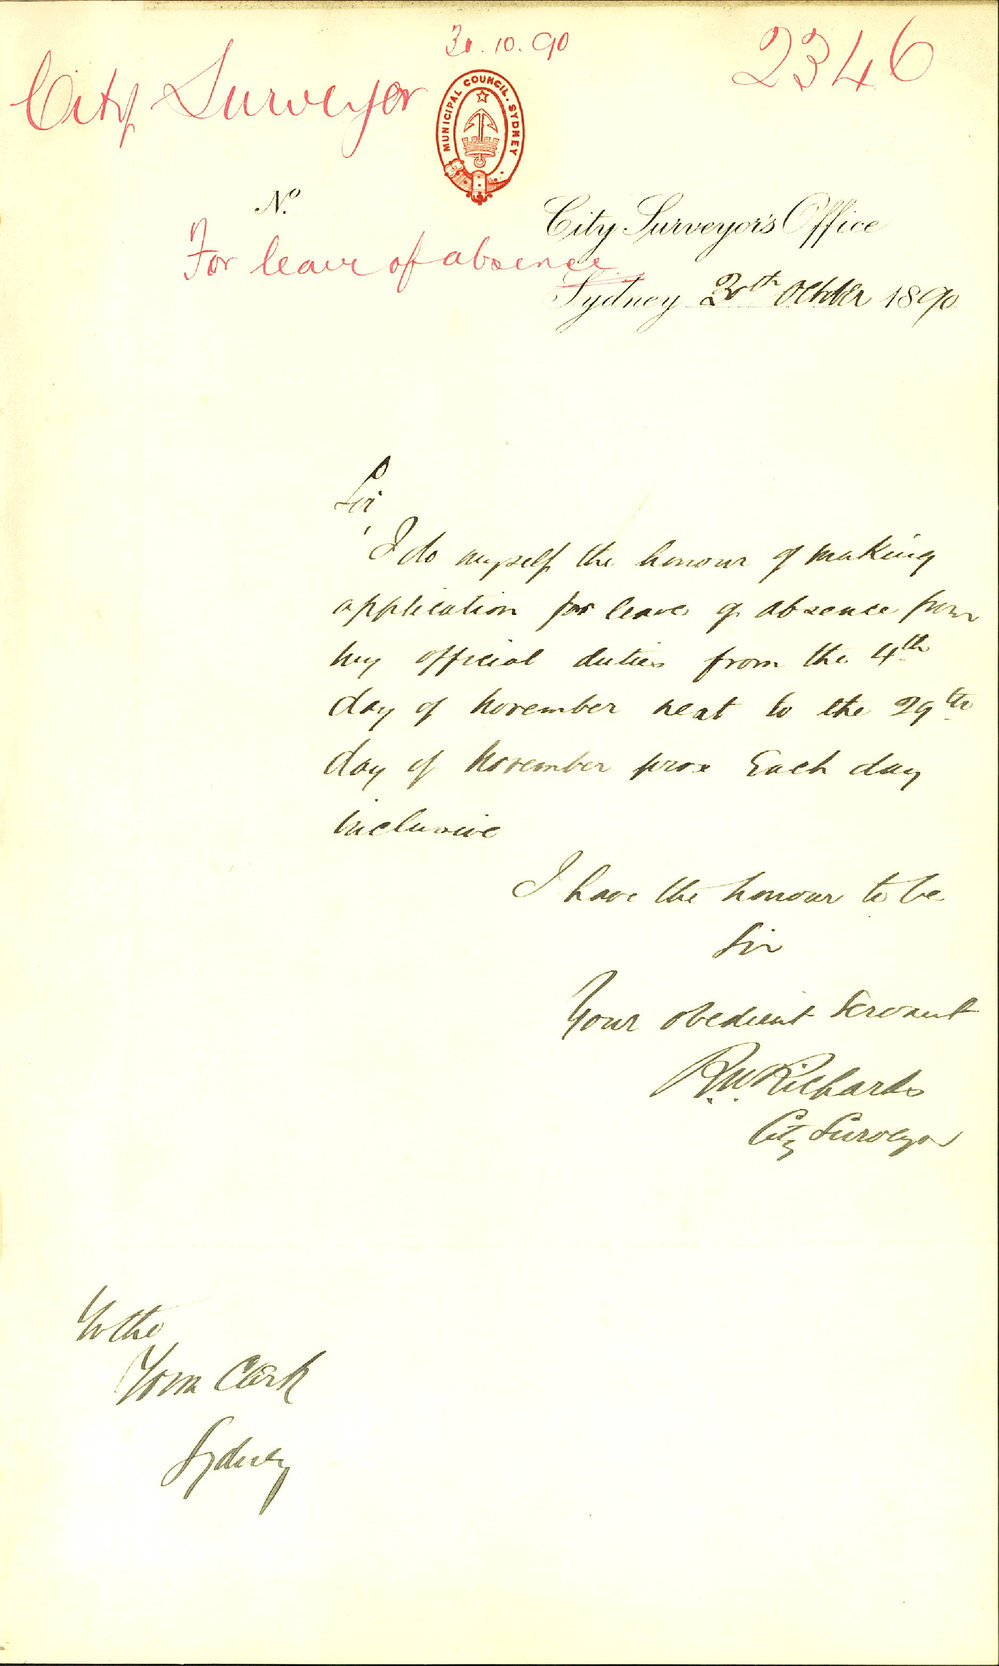 30.10.90
2346
City Surveyor
MUNICIPAL COUNCIL. SYDNEY
No.
City Surveyor's Office
For leave of absence
Sydney 30th October 1890
Sir
I do myself the honour of making
application for leave of absence from
my official duties from the 4th
day of November next to the 29th
day of November prox Each day
inclusive
I have the honour to be
Sir
Your obedient Servant
R.W. Richards
City Surveyor
To the
Town Clerk
Sydney